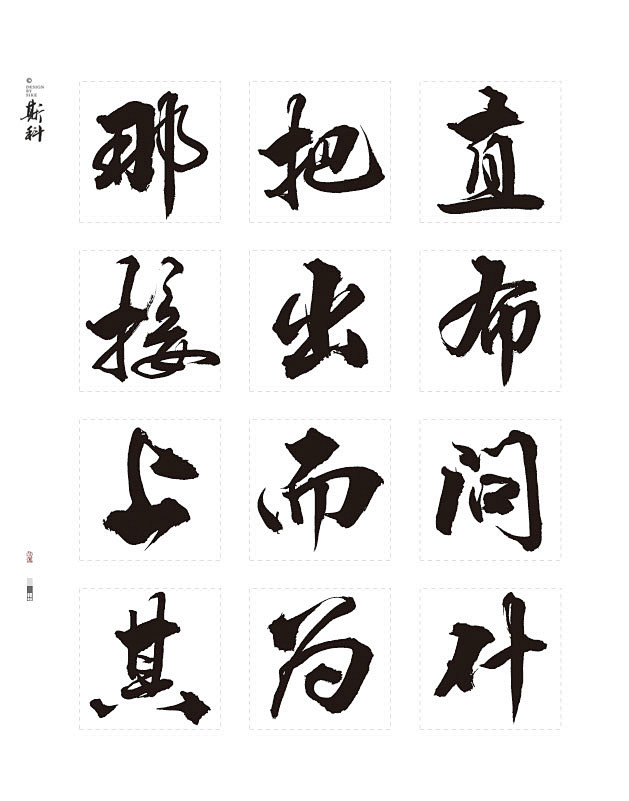 ©
DESIGN
BY
SIKE
斯科
那把直
接出布
上而问
其为什